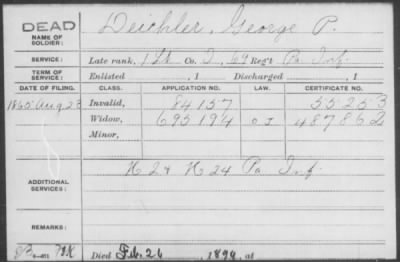 DEAD
NAME OF SOLDIER: Deichler, George P.
SERVICE: Late rank, 1 Lt Co. I, 69 Reg't Pa Inf.
TERM OF SERVICE: Enlisted , 1 Discharged , 1
DATE OF FILING. CLASS. APPLICATION NO. LAW. CERTIFICATE NO.
1865 Aug 28 Invalid, 84157 55253
Widow, 695194 487862
Minor,
ADDITIONAL SERVICES: K 2 & K 24 Pa Inf.
REMARKS:
Died Feb. 26 , 1894, at